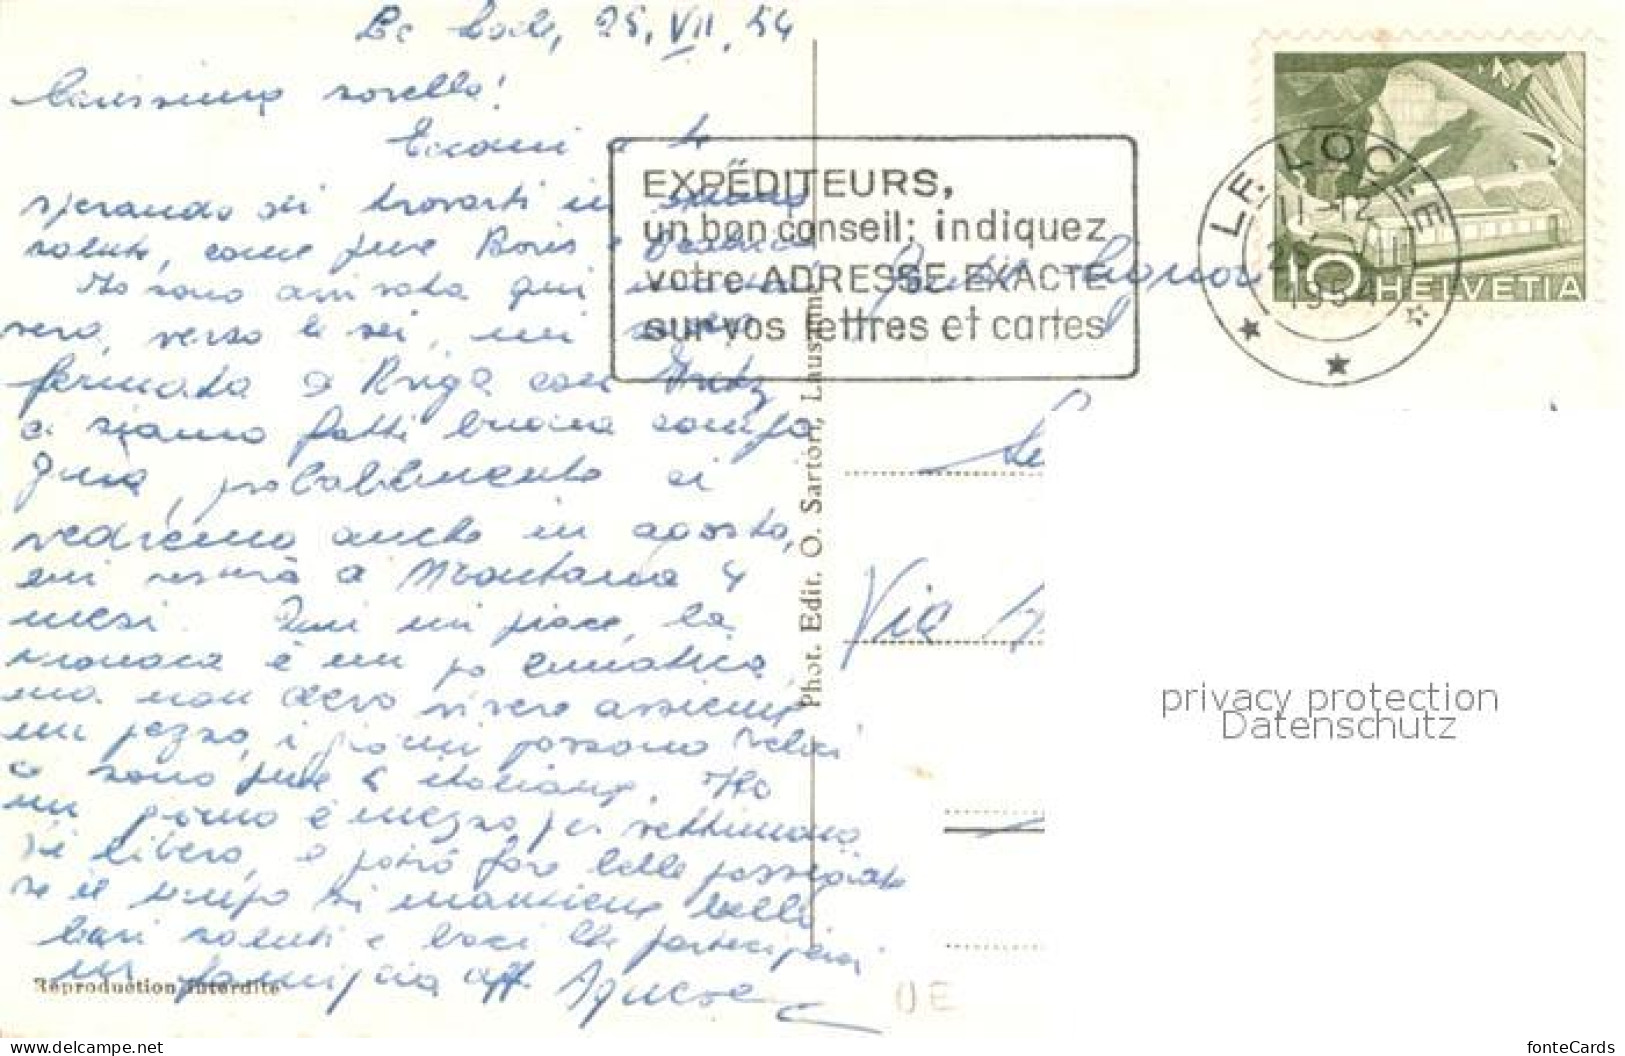 Le Locle, 25. VII. 54
Carissima sorella!
Eccomi a te
sperando di trovarti in
salute, come pure Boris e
Io sono arrivata qui
sera, verso le sei, mi
fermata a Briga con
ci siamo fatti buona compa
gnia, probabilmente ci
vedremo anche in agosto,
mi resterà a Montana 4
mesi. Qui mi piace, la
è un po
ma non devo vivere assieme
un pezzo, i giorni passano veloci
ci sono pure 4 italiane. Ho
un giorno e mezzo per settimana
di libero, e potrò fare belle passeggiate
se il tempo si mantiene bello
Cari saluti e baci che parteciperai
in famiglia aff. Agnese
EXPÉDITEURS,
un bon conseil; indiquez
votre ADRESSE EXACTE
sur vos lettres et cartes
LE LOCLE
11-12
1954
10 HELVETIA
Gentil Signora
Via
Phot. Edit. O. Sartori, Lausanne
Reproduction interdite
privacy protection
Datenschutz
www.delcampe.net
fonteCards